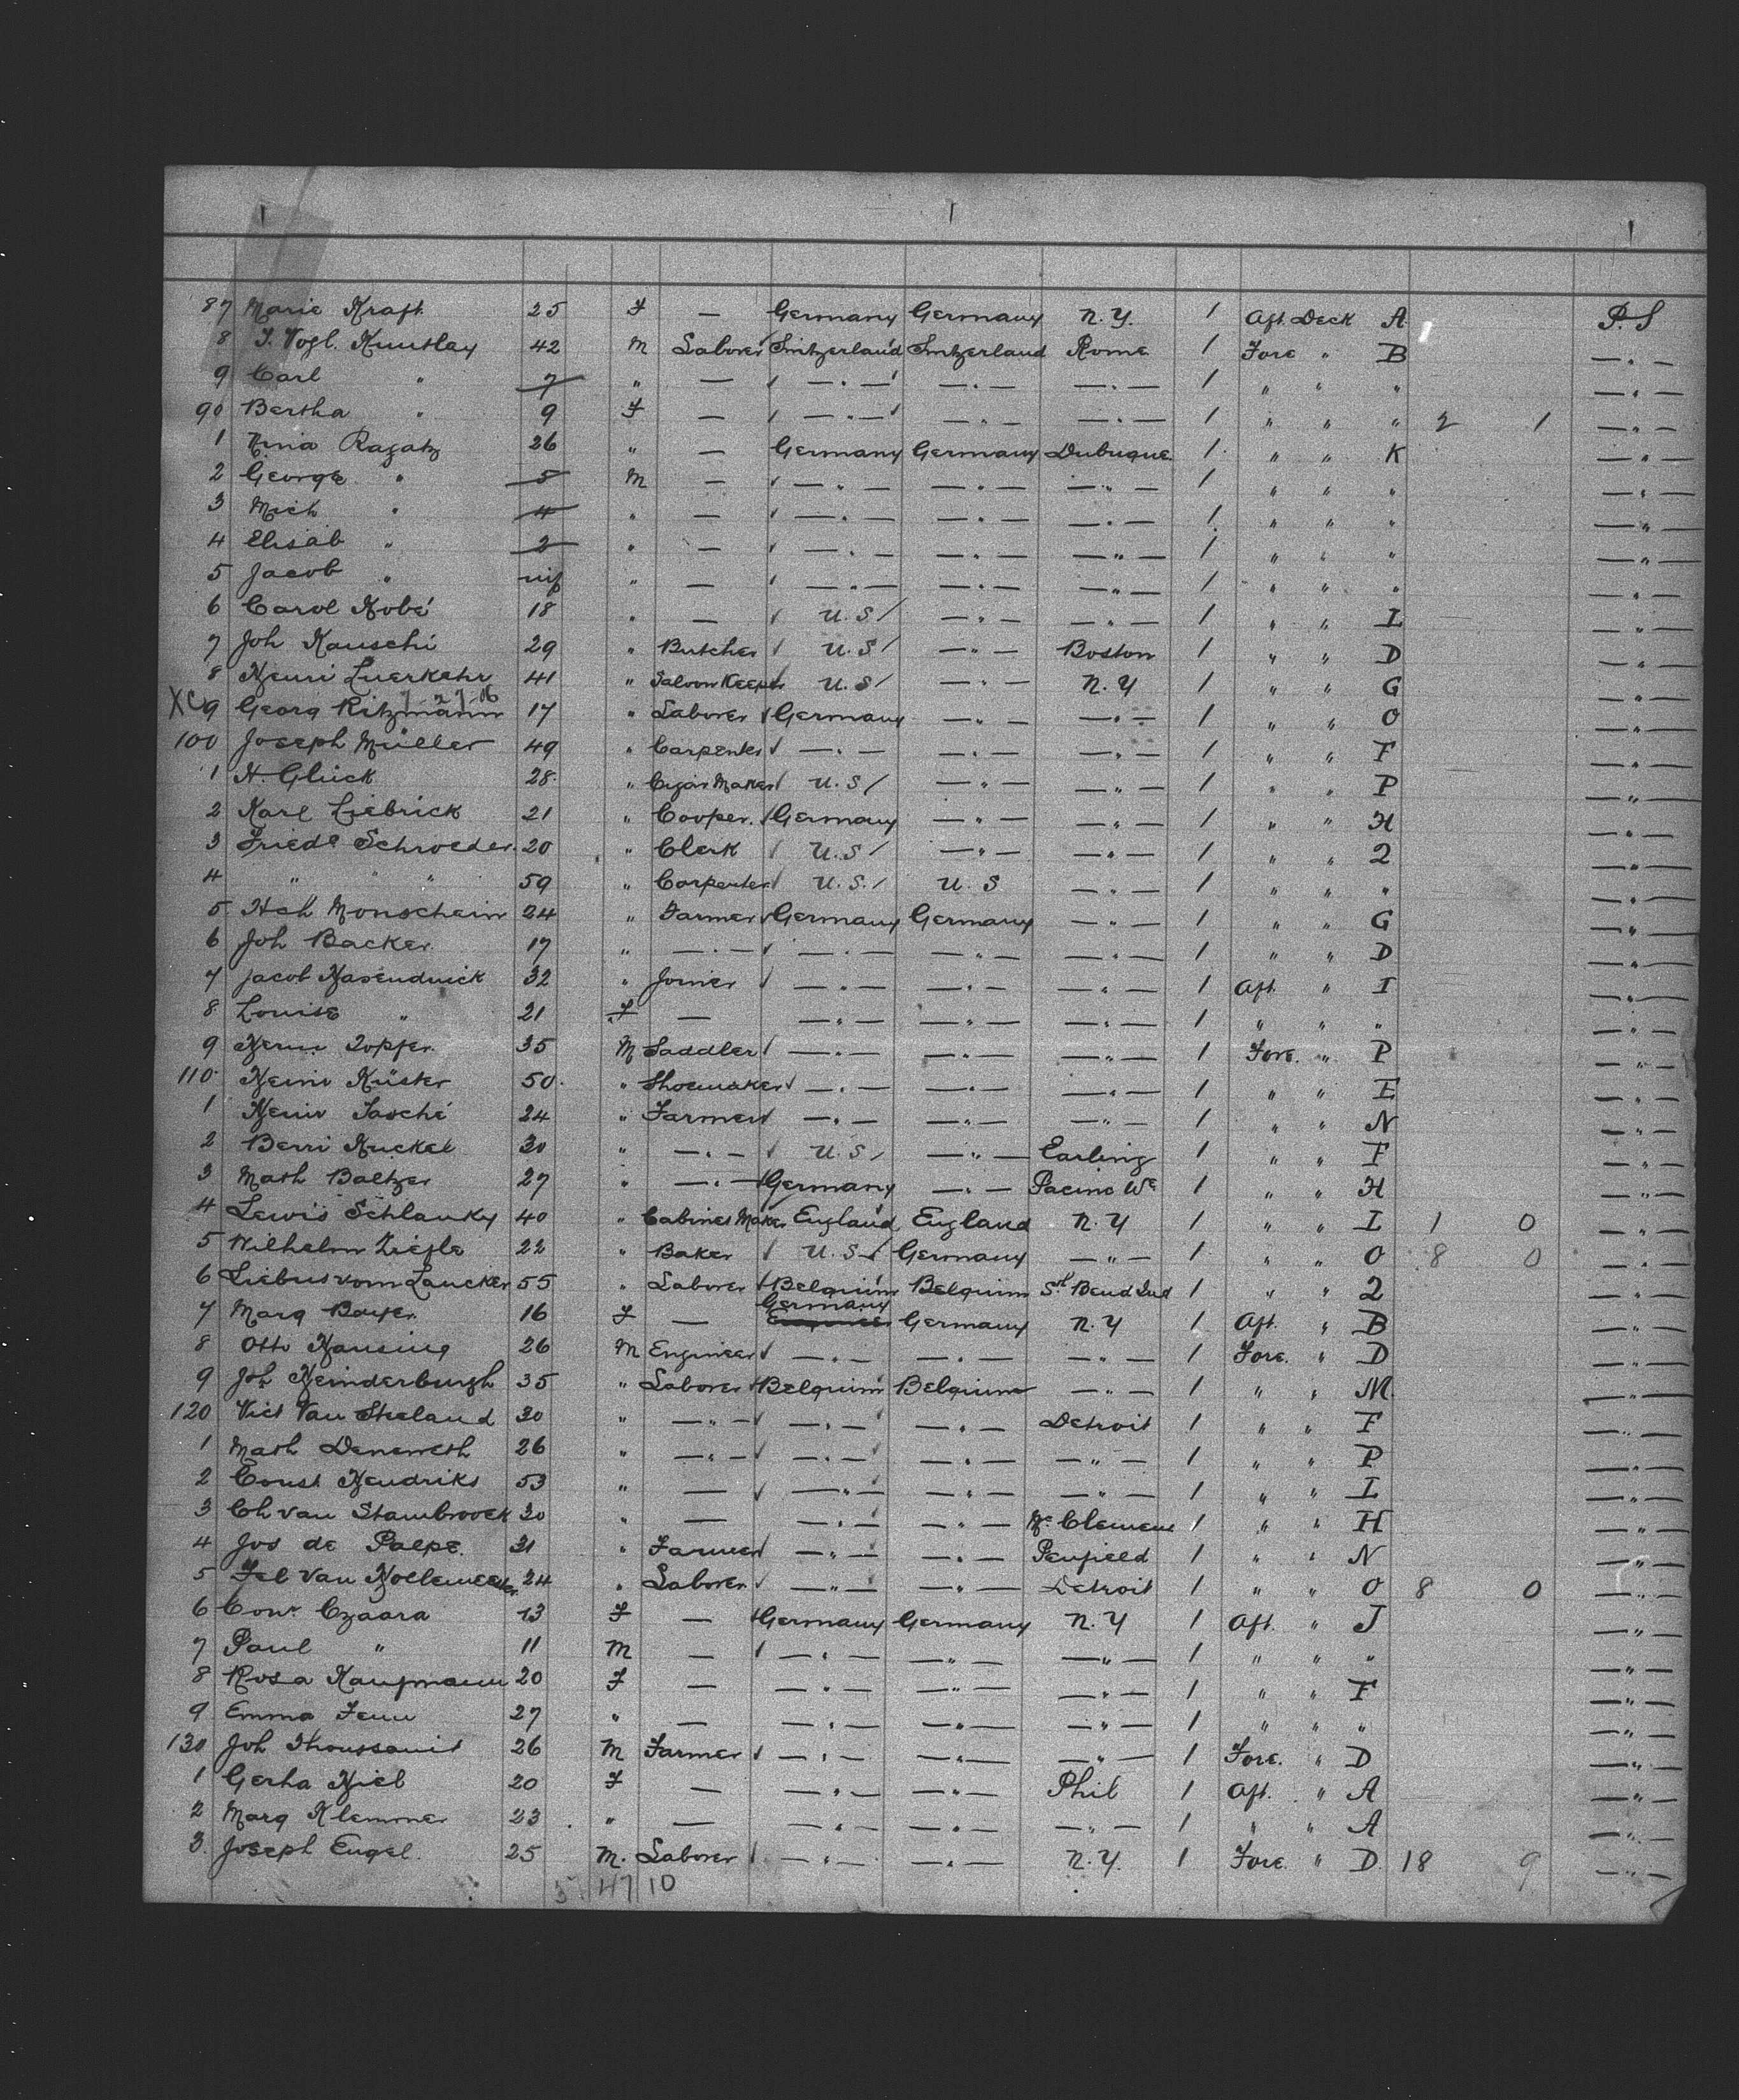 87 Marie Kraft 25 F — Germany Germany N.Y. 1 Aft Deck A P.S
8 J. Vogl. Kuntlay 42 M Laborer Switzerland Switzerland Rome 1 Fore " B — " —
9 Carl " 7 " — — " — — " — — " — 1 " " " — " —
90 Bertha " 9 F — — " — — " — — " — 1 " " " 2 1 — " —
1 Nina Ragatz 26 " — Germany Germany Dubuque 1 " " K — " —
2 George " 5 M — — " — — " — — " — 1 " " " — " —
3 Mich " 4 " — — " — — " — — " — 1 " " " — " —
4 Elisab " 2 " — — " — — " — — " — 1 " " " — " —
5 Jacob " inf " — — " — — " — — " — 1 " " " — " —
6 Carol Kobé 18 " — U.S — " — — " — 1 " " L — " —
7 Joh Kauschi 29 " Butcher U.S — " — Boston 1 " " D — " —
8 Henri Luerkehr 41 " Saloon Keeper U.S — " — N.Y 1 " " G — " —
XC 9 Georg Ritzmann 17 " Laborer Germany — " — — " — 1 " " O — " —
100 Joseph Müller 49 " Carpenter — " — — " — — " — 1 " " F — " —
1 H. Glück 28 " Cigar Maker U.S — " — — " — 1 " " P — " —
2 Karl Liebrick 21 " Cooper. Germany — " — — " — 1 " " H — " —
3 Friedr Schroeder 20 " Clerk U.S — " — — " — 1 " " 2 — " —
4 " " " 59 " Carpenter U.S. U.S — " — 1 " " " — " —
5 Hch Monschein 24 " Farmer Germany Germany — " — 1 " " G — " —
6 Joh Backer 17 " — " — — " — — " — — " — 1 " " D — " —
7 Jacob Hasenduick 32 " Joiner — " — — " — — " — 1 Aft " I — " —
8 Louise " 21 F — — " — — " — — " — 1 " " " — " —
9 Herm. Zopfer 35 M Saddler — " — — " — — " — 1 Fore. " P — " —
110 Heinr Küster 50 " Shoemaker — " — — " — — " — 1 " " E — " —
1 Heinr Jasché 24 " Farmer — " — — " — — " — 1 " " N — " —
2 Berri Kuckel 30 " — " — U.S — " — Earling 1 " " F — " —
3 Math Baltzer 27 " — " — Germany — " — Racine Wc 1 " " H — " —
4 Lewis Schlanky 40 " Cabinet Maker England England N.Y 1 " " I 1 0 — " —
5 Wilhelm Ziefle 22 " Baker U.S Germany — " — 1 " " O 8 0 — " —
6 Liebus vom Laucker 55 " Laborer Belgium Belgium St Bend Ind 1 " " 2 — " —
7 Marg Bayer 16 F — Germany Germany N.Y 1 Aft. " B — " —
8 Otto Hansing 26 M Engineer — " — — " — — " — 1 Fore. " D — " —
9 Joh Heinderburgh 35 " Laborer Belgium Belgium — " — 1 " " M — " —
120 Vict Van Steeland 30 " — " — — " — — " — Detroit 1 " " F — " —
1 Math Deneweth 26 " — " — — " — — " — — " — 1 " " P — " —
2 Const Hendriks 53 " — — " — — " — — " — 1 " " L — " —
3 Ch van Stambroock 30 " — — " — — " — Mt Clemens 1 " " H — " —
4 Jos de Paepe 31 " Farmer — " — — " — Penfield 1 " " N — " —
5 Fel Van 24 " Laborer — " — — " — Detroit 1 " " O 8 0 — " —
6 Conr Czaara 13 F — Germany Germany N.Y 1 Aft. " J — " —
7 Paul " 11 M — — " — — " — — " — 1 " " " — " —
8 Rosa Kaufmann 20 F — — " — — " — — " — 1 " " F — " —
9 Emma Fenn 27 " — — " — — " — — " — 1 " " " — " —
130 Joh Thoussanit 26 M Farmer — " — — " — — " — 1 Fore. " D — " —
1 Gertha Hiel 20 F — — " — — " — Phil 1 Aft. " A — " —
2 Marg Klemmer 23 " — — " — — " — — " — 1 " " A — " —
3 Joseph Engel 25 M. Laborer — " — — " — N.Y. 1 Fore. " D. 18 9 — " —
47 10